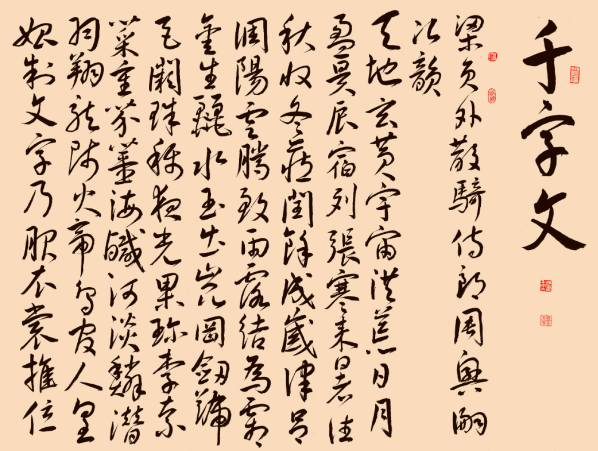 千字文
梁员外散騎侍郎周興嗣
次韻
天地玄黄宇宙洪荒日月
盈昃辰宿列張寒来暑往
秋收冬藏閏餘成歲律吕
调陽雲騰致雨露结為霜
金生麗水玉出崑岡劍號
巨闕珠稱夜光果珍李柰
菜重芥薑海鹹河淡鱗潜
羽翔龍师火帝鸟官人皇
始制文字乃服衣裳推位